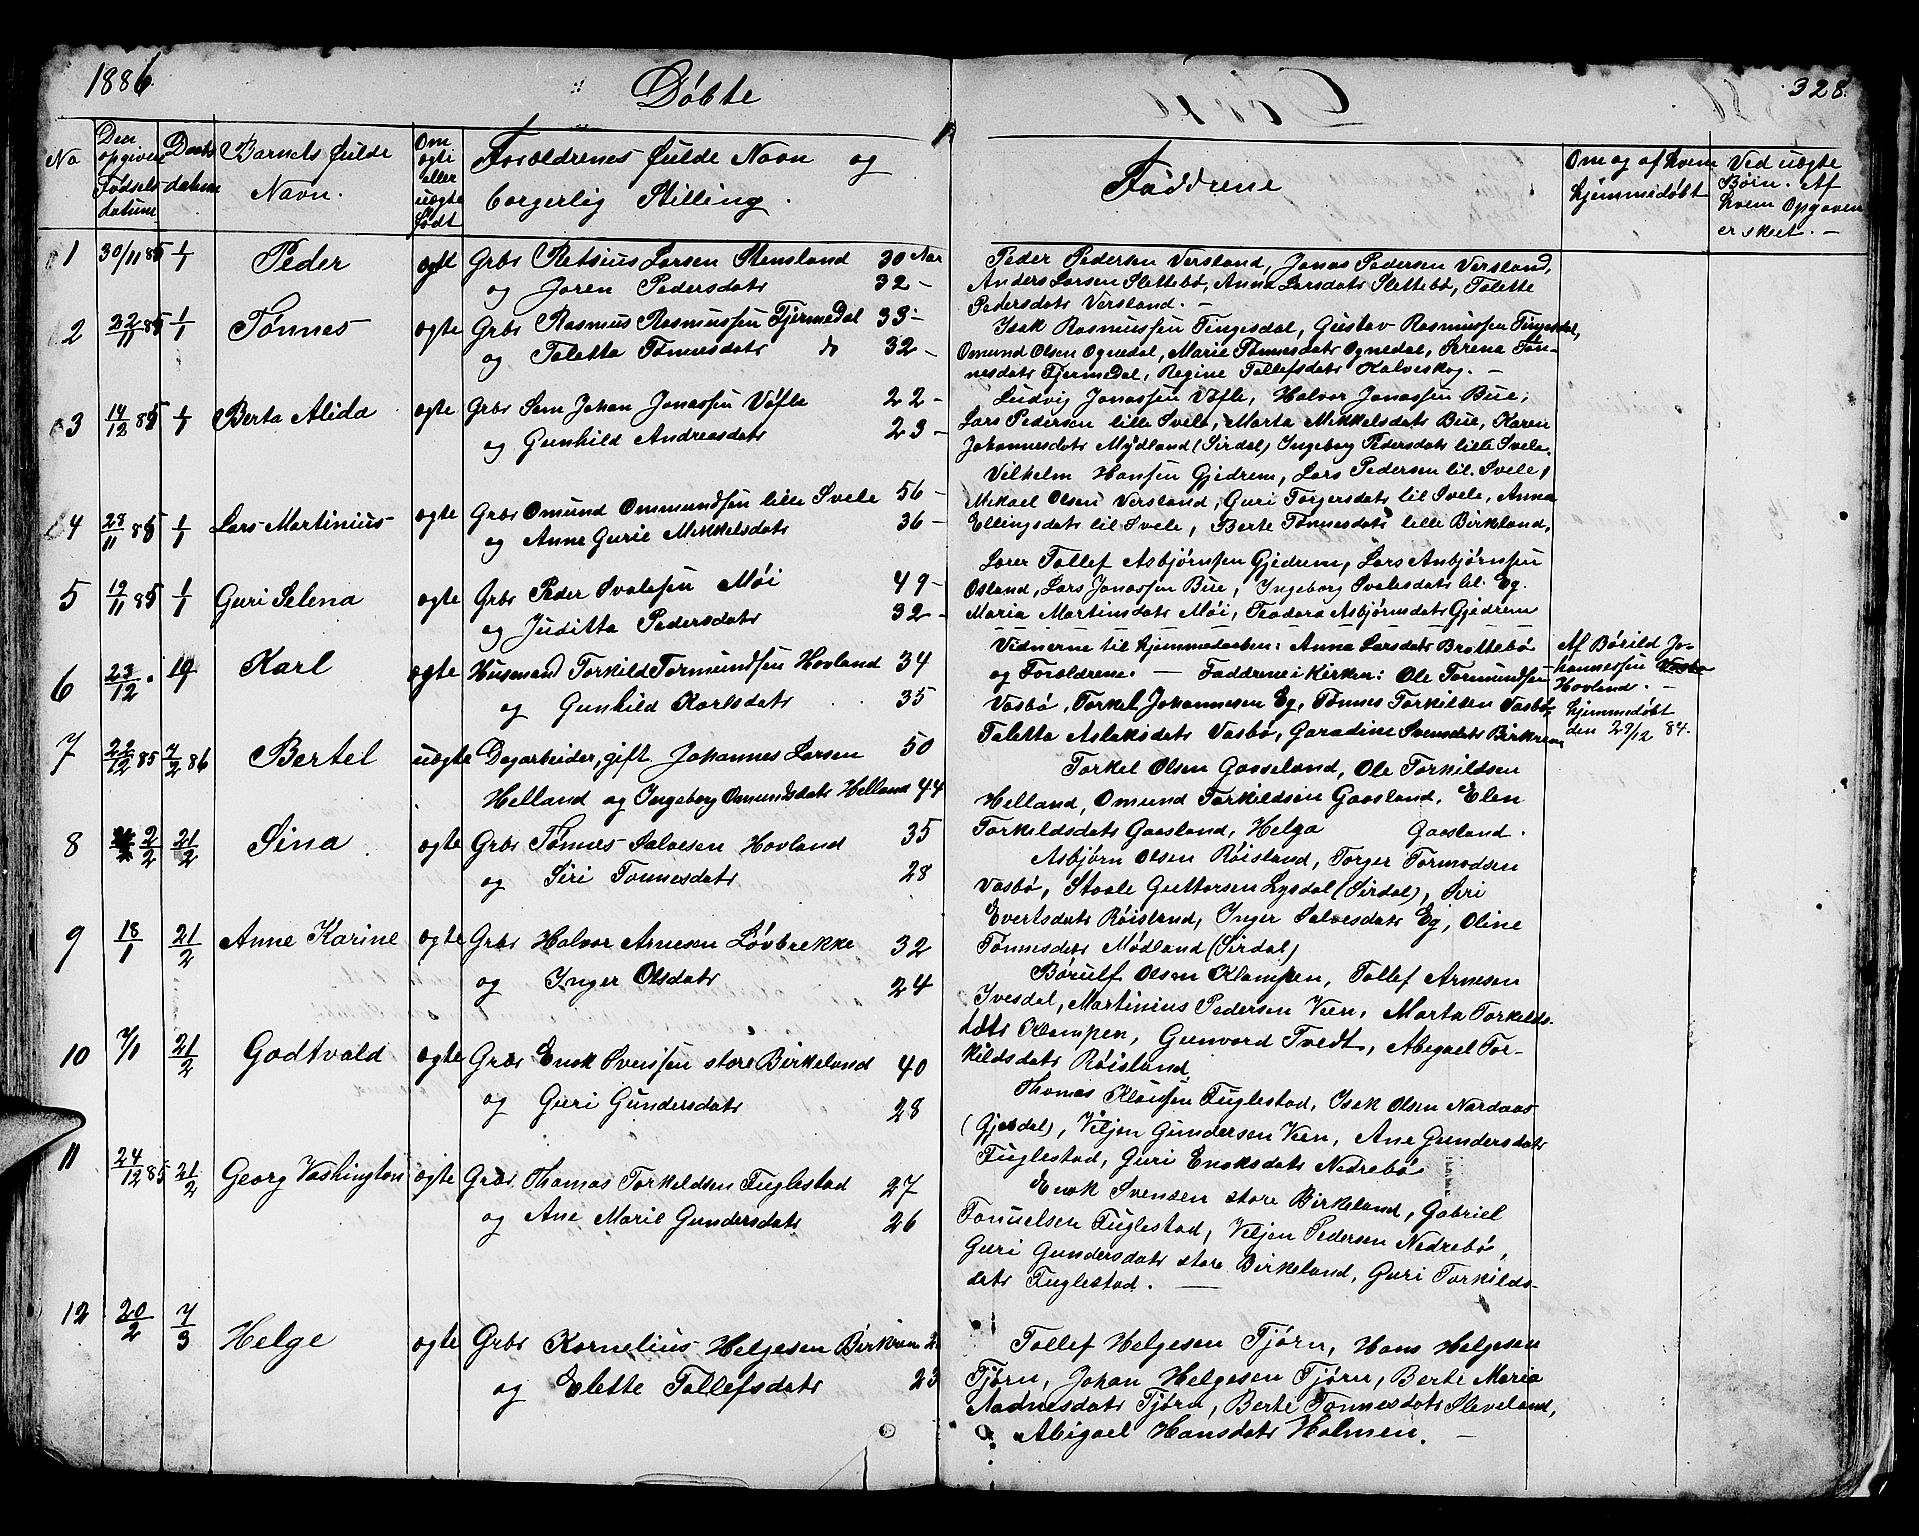 1886
Døbte
328.
No
Den opgivne Fødsels datum
Daabs datum
Barnets fulde Navn.
Om ægte eller uægte født
Forældrenes fulde Navn og borgerlig Stilling.
Faddrene
Om og af hvem hjemmedøbt
Ved uægte Børn. Af hvem Opgaven er skeet. —
1 30/11 85 1/1 Peder ægte Grbr Retsius Larsen Stensland 30 Aar
og Joren Pedersdatr 32 –
Peder Pedersen Versland, Jonas Pedersen Versland,
Anders Larsen Slettebø, Anna Larsdatr Slettebø, Talette
Pedersdatr Versland. —
2 22/11 85 1/1 Tønnes ægte Grbr Rasmus Rasmussen Tjermedal 33 –
og Taletta Tønnesdatr do 32 –
Isak Rasmussen Tingesdal, Gustav Rasmussen Tingesdal,
Omund Olsen Ognedal, Marie Tønnesdatr Ognedal, Serena Tøn-
nesdatr Tjermedal, Regine Tollefsdatr Kalveskog. —
3 14/12 85 1/1 Berta Alida ægte Grbr Sem Johan Jonassen Vøfle 22 –
og Gunhild Andreasdatr 23 –
Ludvig Jonassen Vøfle, Halvor Jonassen Bue,
Lars Pedersen lille Svele, Marta Mikkelsdatr Bue, Karen
Johannesdatr Mydland (Sirdal) Ingeborg Pedersdatr lille Svele.
4 28/11 85 1/1 Lars Martinius ægte Grbr Omund Ommundsen lille Svele 56 –
og Anne Gurie Mikkelsdatr 36 –
Vilhelm Hansen Gjedrem, Lars Pedersen lil. Svele,
Mikael Olsen Versland, Guri Torgersdatr lil Svele, Anna
Ellingsdatr lil Svele, Berte Tønnesdatr lille Birkeland,
5 19/11 85 1/1 Guri Selena ægte Grbr Peder Svalesen Møi 49 –
og Juditta Pedersdatr 32 –
Lærer Tollef Asbjørnsen Gjedrem, Lars Asbjørnsen
Osland, Lars Jonassen Bue, Ingeborg Svalesdatr lil. Eg.
Maria Martinsdatr Møi, Teodora Asbjørnsdatr Gjedrem
6 23/12 Karl ægte Husmand Torkild Tormundsen Hovland 34
og Gunhild Karlsdatr 35
Vidnerne til hjemmedaaben: Anna Larsdatr Brattebø
og Forældrene. — Faddrene i Kirken: Ole Tormundsen
Vasbø, Torkel Johannesen Eg, Tønnes Torkilsen Vasbø,
Taletta Aslaksdatr Vasbø, Garadine Svensdatr Birkrem
Af Børild Jo-
hannessen
Hovland. —
hjemmedøbt
den 29/12 84.
7 22/12 85 7/2 86 Bertel uægte Dagarbeider, gift Johannes Larsen 50
Helland og Ingeborg Omundsdatr Helland 44
Torkel Olsen Gaaseland, Ole Torkildsen
Helland, Omund Torkildsen Gaasland, Elen
Torkildsdatr Gaasland, Helga Gaasland.
8 2/2 21/2 Sina ægte Grbr Tønnes Salvesen Hovland 35
og Siri Tønnesdatr 28
Asbjørn Olsen Røisland, Torger Tormodsen
Vasbø, Staale Guttorsen Lysdal (Sirdal), Siri
Evertsdatr Røisland, Inger Salvesdatr Eg, Oline
Tønnesdatr Mødland (Sirdal)
9 18/1 21/2 Anne Karine ægte Grbr Halvor Arnesen Løvbrekke 32
og Inger Olsdatr 24
Børulf Olsen Klampen, Tollef Arnesen
Ivesdal, Martinius Pedersen Veen, Marta Torkilds-
datr Klampen, Gunvord Tvedt, Abigael Tor-
kildsdatr Røisland
10 7/1 21/2 Godtvald ægte Grbr Enok Svensen store Birkeland 40
og Guri Gundersdatr 28
Thomas Fuglestad, Isak Olsen Nardaas
(Gjesdal), Viljon Gundersen Veen, Ane Gundersdatr
Fuglestad, Guri Enoksdatr Nedrebø
11 24/12 85 21/2 Georg Vashington ægte Grbr Thomas Torkeldsen Fuglestad 27
og Ane Marie Gundersdatr 26
Enok Svensen store Birkeland, Gabriel
Tønnelsen Fuglestad, Viljon Pedersen Nedrebø,
Guri Gundersdatr store Birkeland, Guri Torkilds-
datr Fuglestad. —
12 20/2 7/3 Helge ægte Grbr Kornelius Helgesen Birkrem
og Elette Tollefsdatr 23
Tollef Helgesen Tjørn, Hans Helgesen
Tjørn, Johan Helgesen Tjørn, Berte Maria
Aadnesdatr Tjørn, Berte Tønnesdatr Sleveland,
Abigael Hansdatr Holmen. —